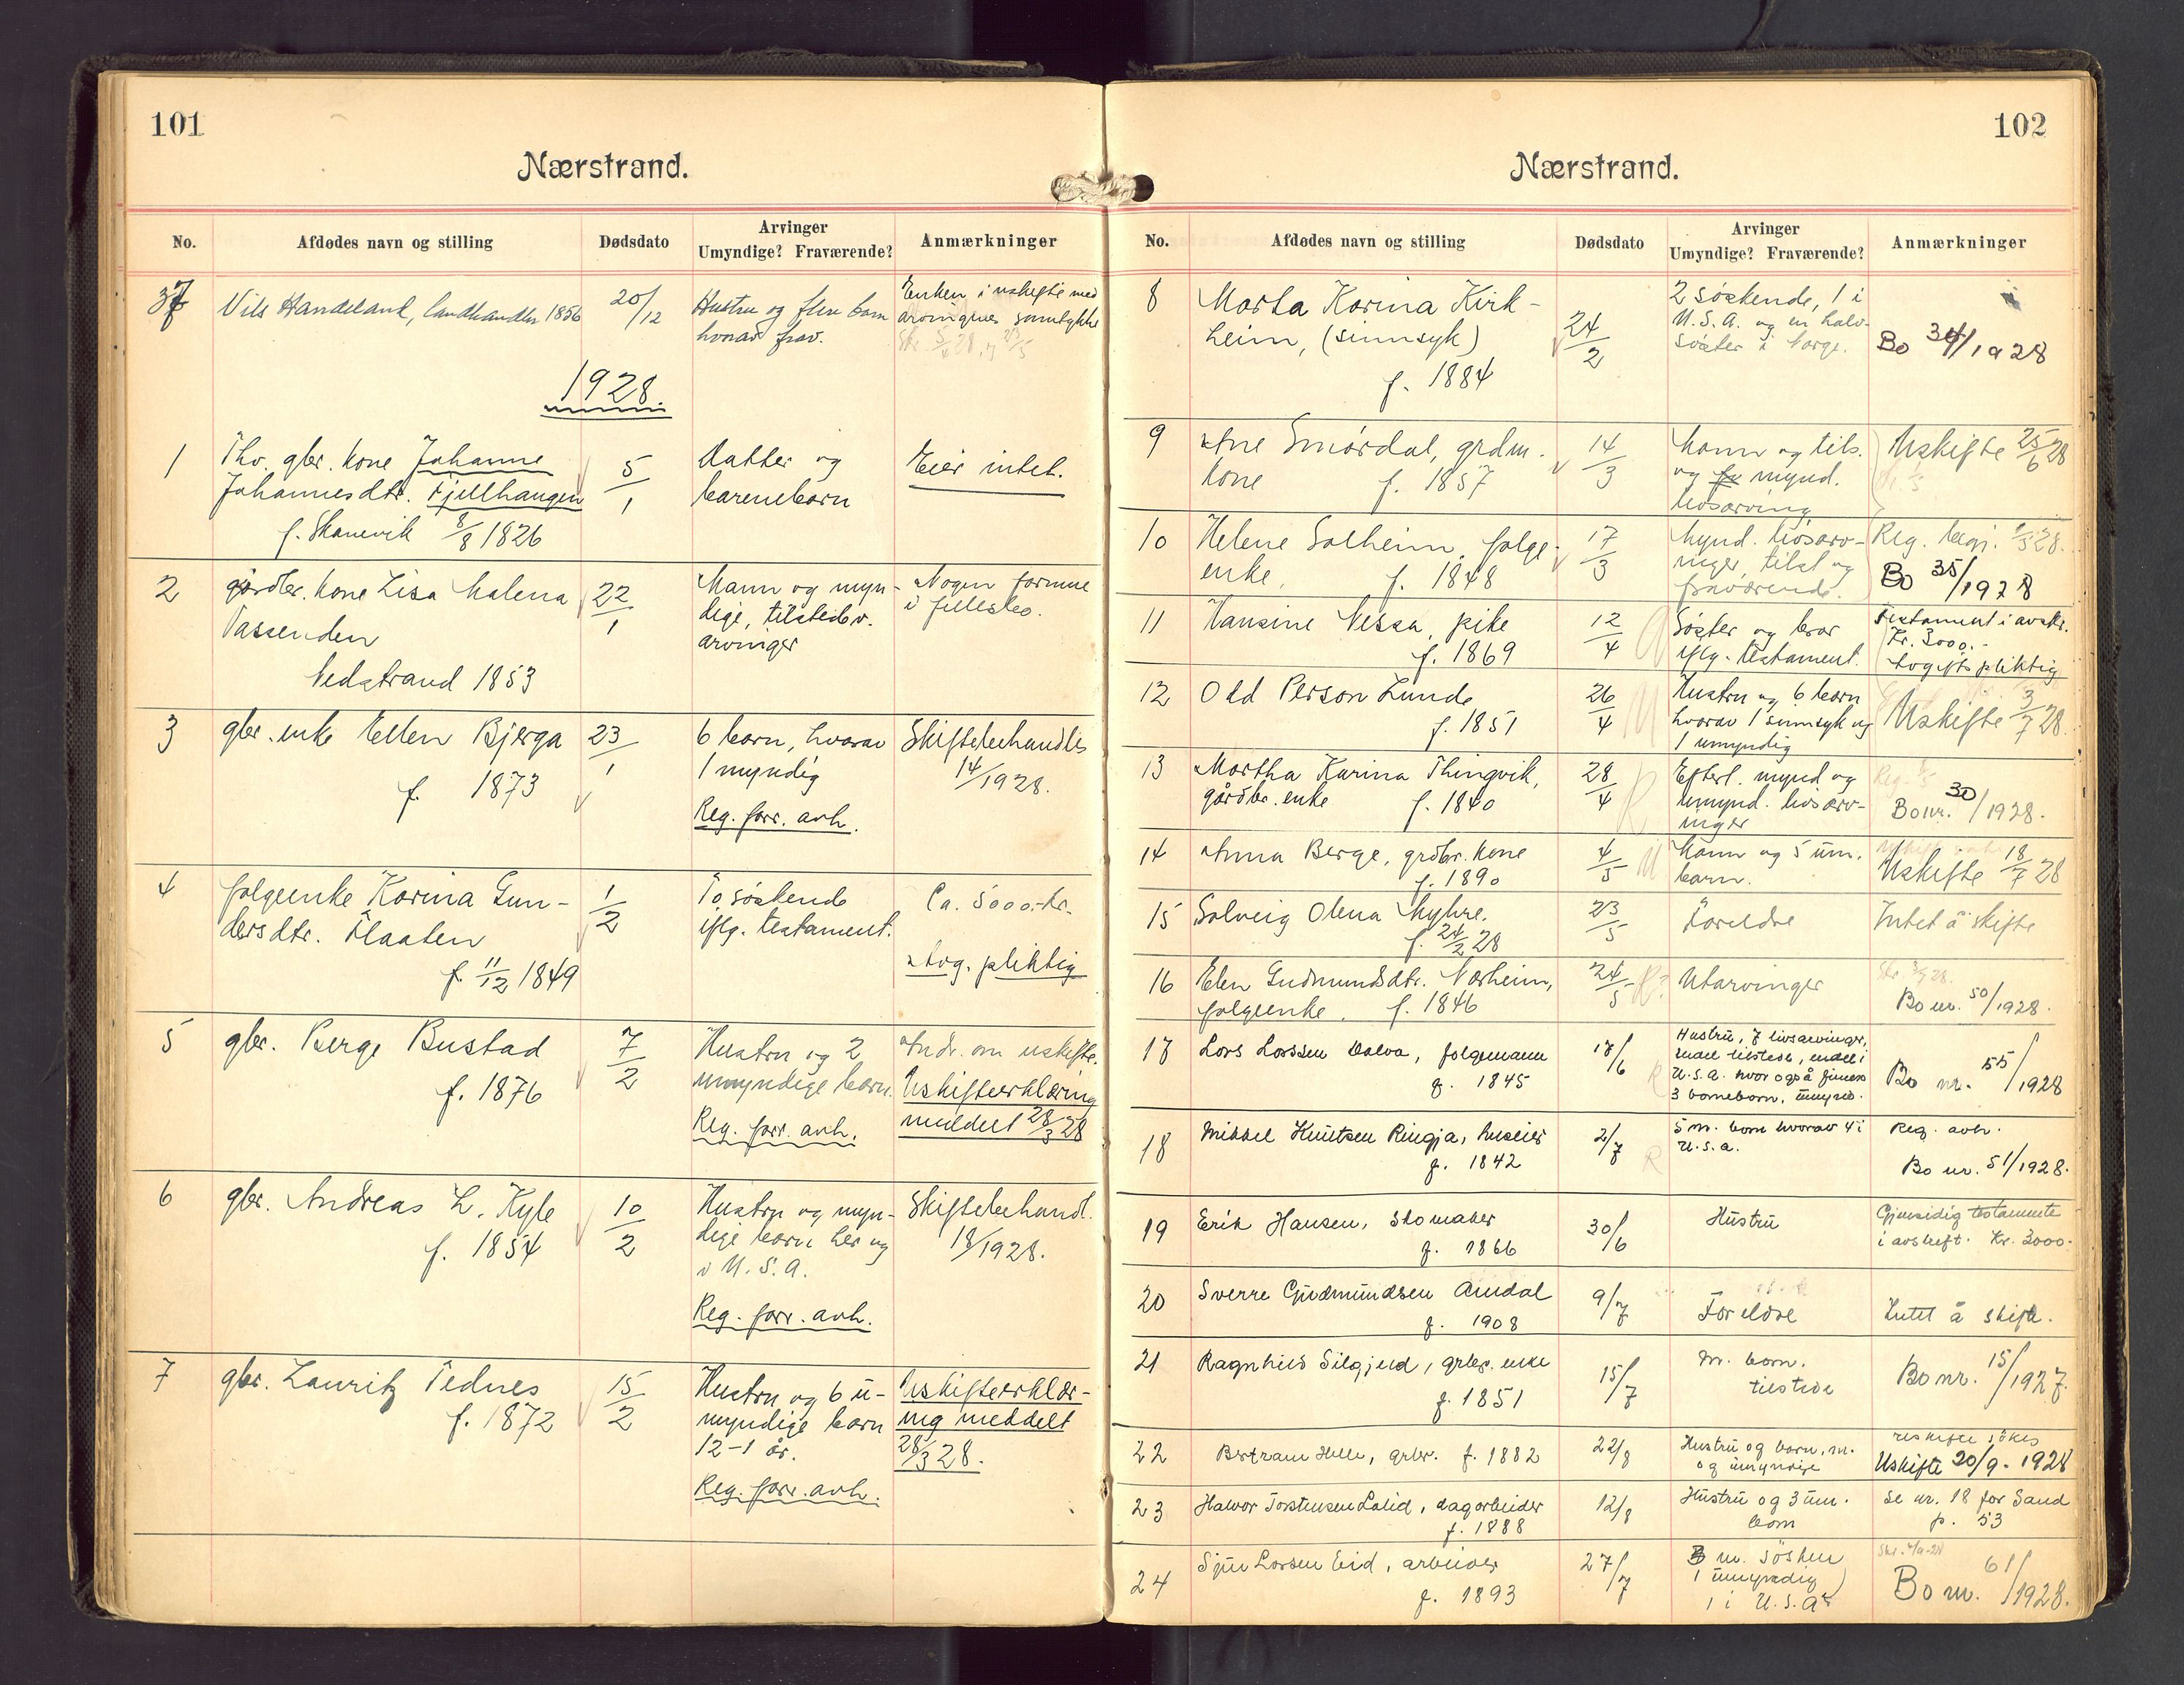 101
Nærstrand.
No. Afdødes navn og stilling Dødsdato Arvinger Umyndige? Fraværende? Anmærkninger
37 Nils Handeland, landhandler 1856 20/12 Hustru og flere barn Enken i uskifte med
hvorav frav. arvingenes samtykke
1928.
1 Fhv. gbr. kone Johanne 5/1 Datter og Eier intet.
Johannesdtr. Fjellhaugen barnebarn
f. Skånevik 8/8 1826
2 gårdbr. kone Lisa Malena 22/1 Mann og myn- Nogen formue
Vassenden dige, tilstedev. i fellesbo.
Nedstrand 1853 arvinger
3 gbr. enke Ellen Bjerga 23/1 6 barn, hvorav Skiftebehandles
f. 1873 1 myndig 14/1928.
Reg. forr. avh.
4 følgeenke Karina Gun- 1/2 To søskende Ca. 5000.- kr.
dersdtr. Flaaten iflg. testament.
f. 11/12 1849 Avg. pliktig
5 gbr. Berge Bustad 7/2 Hustru og 2 Andr. om uskifte.
f. 1876 umyndige barn. Uskifteerklæring
Reg. forr. avh. meddelt 28/3 28
6 gbr. Andreas L. Kyle 10/2 Hustru og myn- Skiftebehandl.
f. 1854 dige barn her og 18/1928.
i U.S.A.
Reg. forr. avh.
7 gbr. Lauritz Tednes 15/2 Hustru og 6 u- Uskifteerklær-
f. 1872 myndige barn ing meddelt
12-1 år. 28/3 28.
Reg. forr. avh.
102
Nærstrand.
No. Afdødes navn og stilling Dødsdato Arvinger Umyndige? Fraværende? Anmærkninger
8 Marta Karina Kirk- 24/2 2 søskende, 1 i
heim, (sinnsyk) U.S.A. og en halv- Bo 34/1928
f. 1884 søster i Norge.
9 Ane Smørdal, grdm. 14/3 Mann og tils. Uskifte 25/6 28
kone f. 1857 og mynd.
livsarving
10 Helene Solheim, følge- 17/3 Mynd. livsarv- Reg. begj. 28.
enke. f. 1848 inger, tilst og Bo 35/1928
fraværende.
11 Hansine Nessa, pike 12/4 Søster og bror Testament i avskr.
f. 1869 iflg. testament. Kr. 3000.-
Avgiftspliktig
12 Odd Person Lunde 26/4 Hustru og 6 barn Uskifte 3/7 28
f. 1851 hvorav 1 sinnsyk og
1 umyndig
13 Martha Karina Thingvik, 28/4 Efterl. mynd og
gårdbr. enke f. 1840 umynd. livsarv- Bo nr. 30/1928.
inger
14 Anna Berge, grdbr. kone 4/5 Mann og 5 um. Uskifte 18/7 28
f. 1890 barn.
15 Solveig Olena Myhre. 23/5 Foreldre Intet å skifte
f. 24/2 28
16 Elen Gudmundsdtr. Nørheim, 24/5 Utarvinger
følgeenke. f. 1846 Bo nr. 50/1928.
17 Lars Larssen Dalva, følgemann 17/6 Hustru, 7 livsarvinger,
f. 1845 endel tilstede, endel i
U.S.A. hvor også finnes Bo nr. 55/1928
3 barnebarn, umynd.
18 Mikkel Knutsen Ringja, huseier 2/7 5 m. barn hvorav 4 i Reg. avh.
f. 1842 U.S.A. Bo nr. 51/1928.
19 Erik Hansen, skomaker 30/6 Hustru Gjensidig testamente
f. 1866 i avskrift. Kr. 3000.-
20 Sverre Gudmundsen Amdal 9/7 Foreldre Intet å skifte.
f. 1908
21 Ragnhild Silgjerd, grbr. enke 15/7 M. barn. Bo nr. 15/1927.
f. 1851 tilstede
22 Bertram Helle, grbr. f. 1882 22/8 Hustru og barn, m. uskifte søkes
og umyndige Uskifte 20/9 - 1928
23 Halvor Torstensen Lalid, dagarbeider 12/8 Hustru og 3 um. Se nr. 18 for Sand
f. 1888 barn p. 53
24 Sjur Larsen Eid, arbeider 27/7 3 m. søsken
f. 1893 1 umyndig Bo nr. 61/1928.
1 i U.S.A.